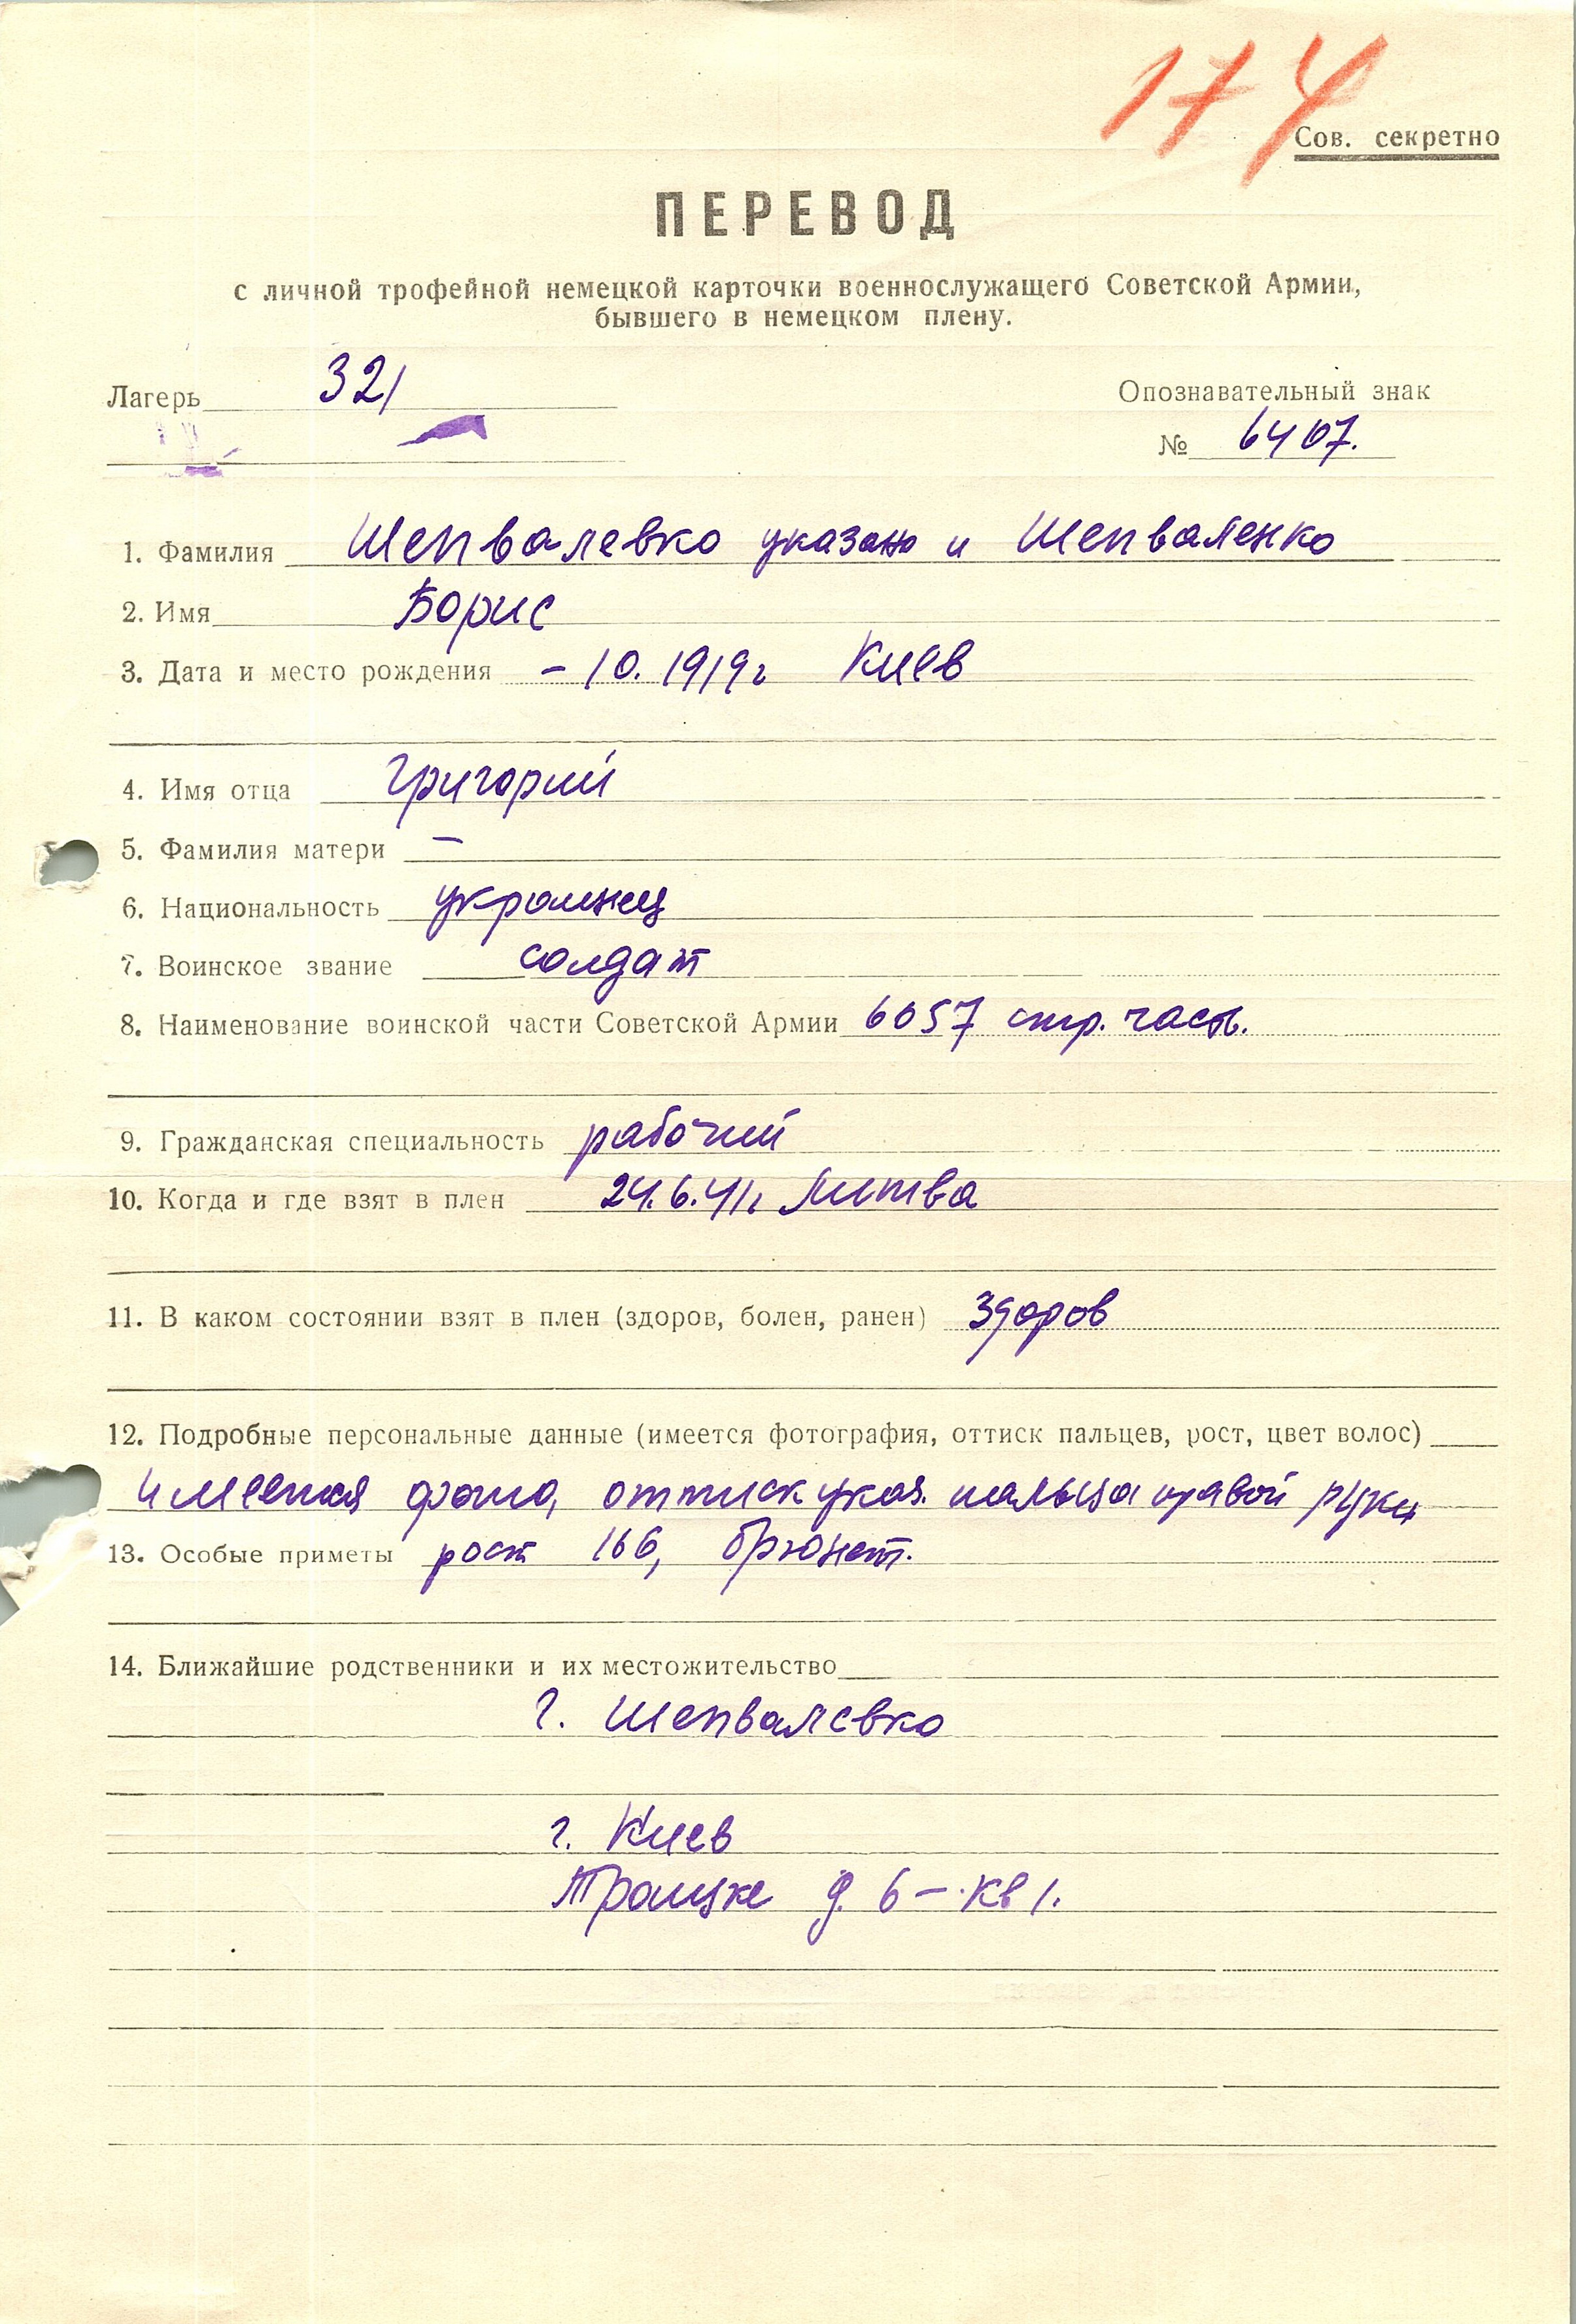 174
Сов. секретно
ПЕРЕВОД
с личной трофейной немецкой карточки военнослужащего Советской Армии,
бывшего в немецком плену.
Лагерь 321
Опознавательный знак
№ 6407.
1. Фамилия Шепвалевко указано и Шепваленко
2. Имя Борис
3. Дата и место рождения – 10. 1919 г Киев
4. Имя отца Григорий
5. Фамилия матери —
6. Национальность украинец
7. Воинское звание солдат
8. Наименование воинской части Советской Армии 6057 стр. часть.
9. Гражданская специальность рабочий
10. Когда и где взят в плен 24.6.41г. Литва
11. В каком состоянии взят в плен (здоров, болен, ранен) здоров
12. Подробные персональные данные (имеется фотография, оттиск пальцев, рост, цвет волос)
имеется фото, оттиск указ. пальца правой руки
13. Особые приметы рост 166, брюнет.
14. Ближайшие родственники и их местожительство
Г. Шепвалевко
г. Киев
Троицке д. 6 – кв 1.